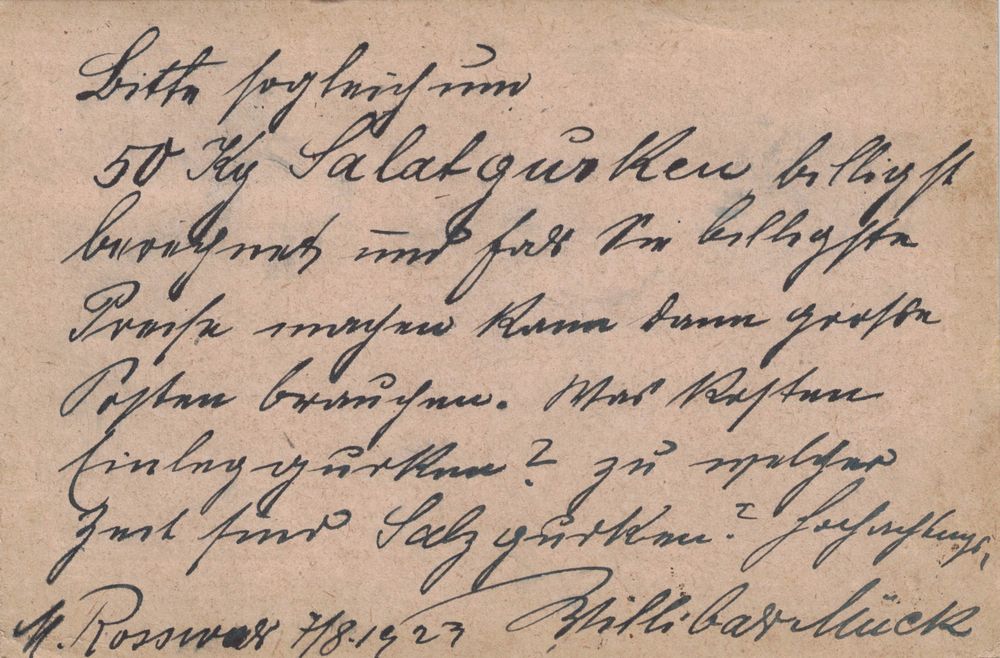 Bitte sogleich um
50 Kg Salatgurken billigst
berechnet und falls Sie billigste
Preise machen kann dann grosse
Posten brauchen. Was kosten
Einleggurken? zu welcher
Zeit sind Salzgurken? Hochachtungs,
M. Rosswald 7/8.1923 Willibald Mück